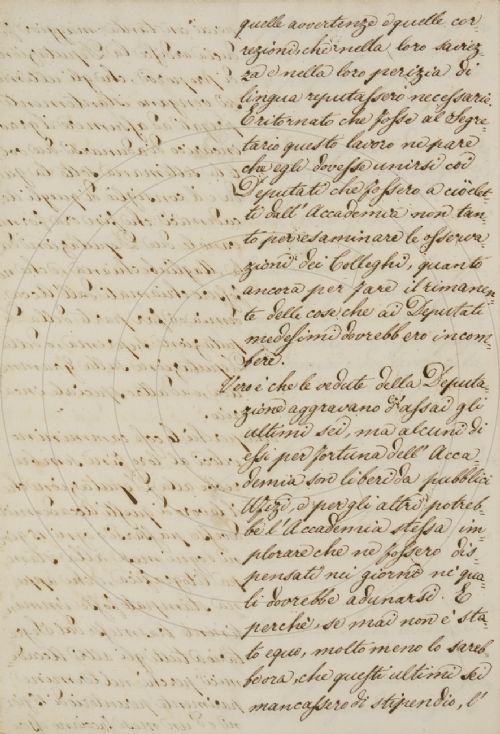 quelle avvertenze e quelle cor
rezioni, che nella loro saviez
za e nella loro perizia di
lingua reputassero necessarie.
E ritornato che fosse al Segre
tario questo lavoro ne pare
che egli dovesse unirsi coi
Deputati che fossero a ciò elet-
ti dall'Accademia non tan-
to per esaminare le osserva
zioni dei Colleghi, quanto
ancora per fare il rimanen-
te delle cose che ai Deputati
medesimi dovrebbero incom-
bere.
Vero è che le vedute della Deputa
zione aggravano d'assai gli
ultimi sei, ma alcuni di
essi per fortuna dell'Acca
demia son liberi da pubblici
Ufizi, e per gli altri potreb-
be l'Accademia stessa im
plorare che ne fossero dis-
pensati nei giorni ne' qua-
li dovrebbe adunarsi. E
perchè, se mai non è sta
to equo, molto meno lo sareb
be ora, che questi ultimi sei
mancassero di stipendio, l'